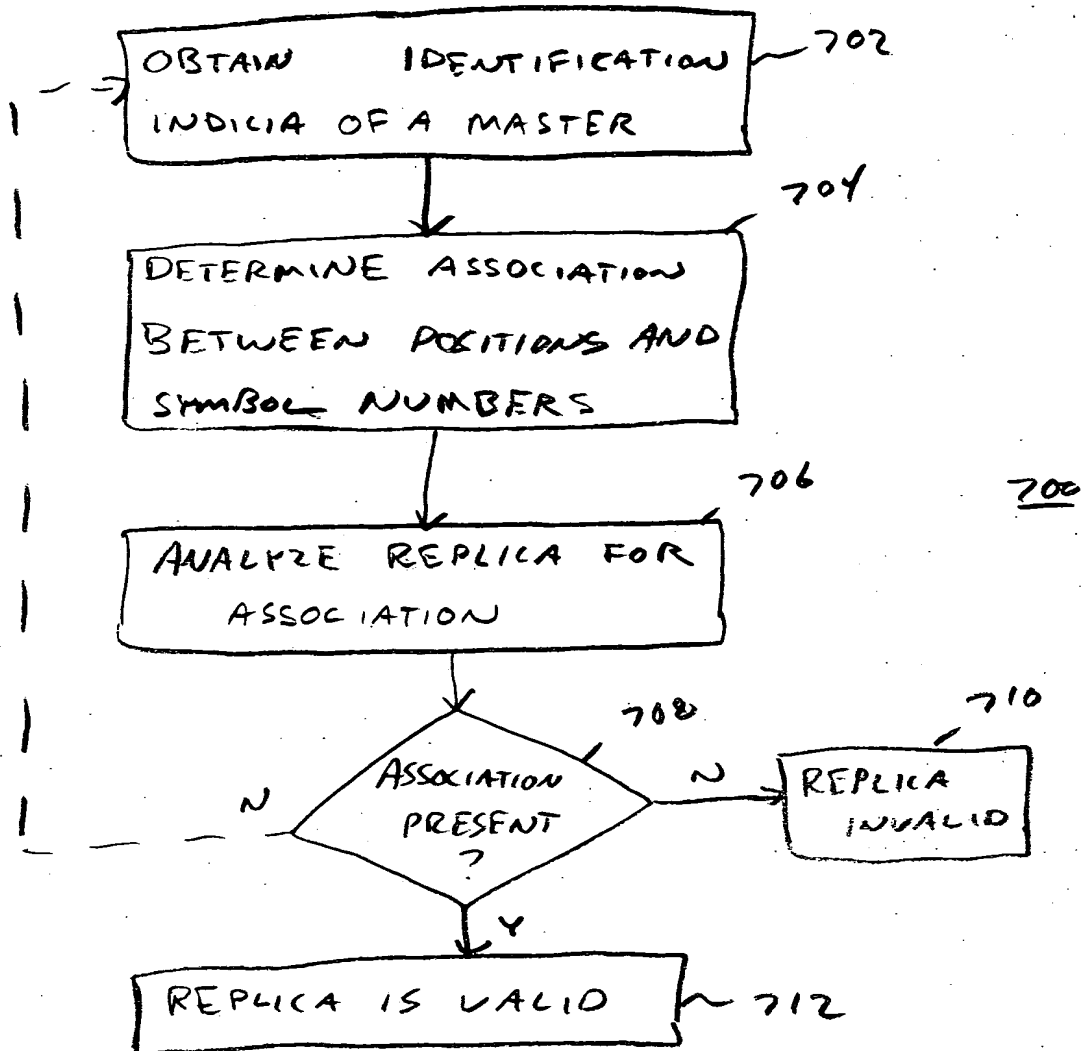 OBTAIN IDENTIFICATION
INDICIA OF A MASTER
702
704
DETERMINE ASSOCIATION
BETWEEN POSITIONS AND
SYMBOL NUMBERS
706
700
ANALYZE REPLICA FOR
ASSOCIATION
708
710
N
ASSOCIATION
PRESENT
?
N
REPLICA
INVALID
Y
REPLICA IS VALID
712